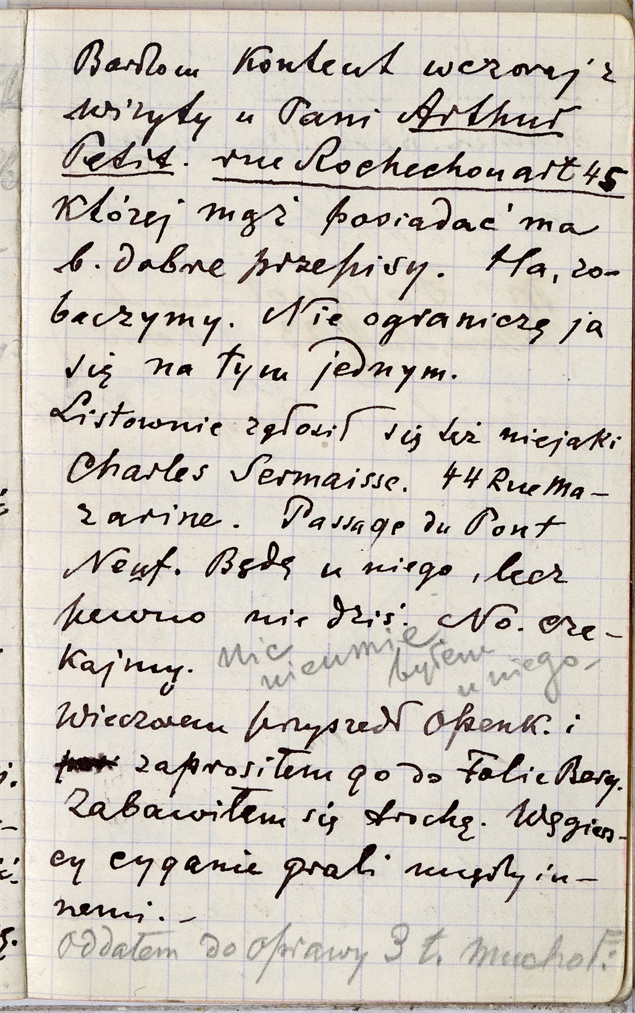 Bardzom kontent wczoraj z
wizyty u Pani Arthur
Petit. rue Rochechouart 45
której mąż posiadać ma
b. dobre przepisy. Ha, zo-
baczymy. Nie ograniczę ja
się na tym jednym.
Listownie zgłosił się też niejaki
Charles Sermaisse. 44 Rue Ma-
zarine. Passage du Pont
Neuf. Będę u niego, lecz
pewno nie dziś. No. cze-
kajmy. Nic nie umie. byłem
u niego.
Wieczorem przyszedł Openk. i
zaprosiłem go do Folie Berg.
Zabawiłem się trochę. Węgiers-
cy cyganie grali między in-
nemi. –
oddałem do oprawy 3 t. Muchol.